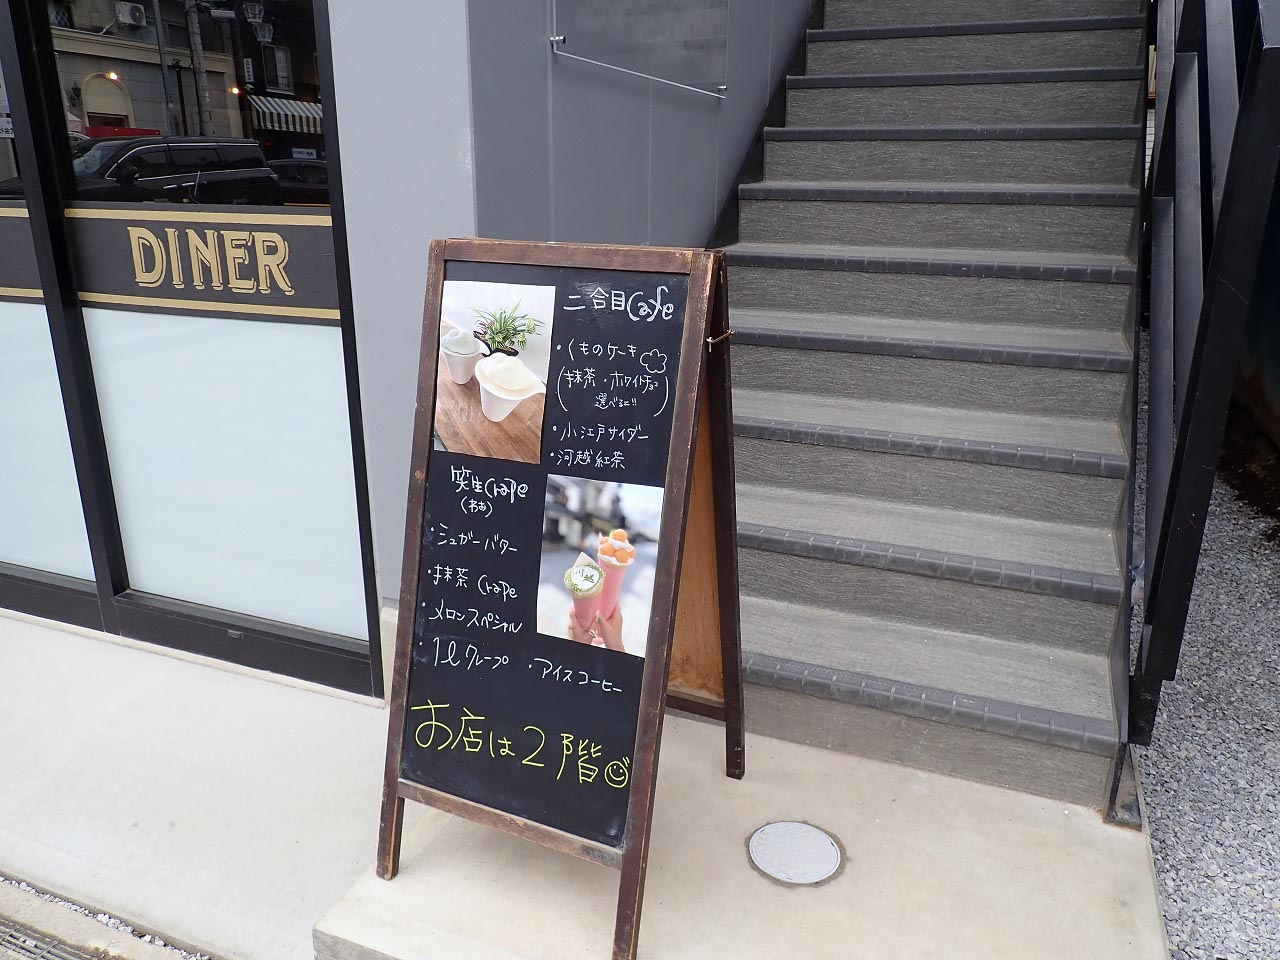 DINER
二合目Cafe
・くものケーキ
(抹茶・ホワイトチョコ
選べるに!!)
・小江戸サイダー
・河越紅茶
笑生Crape
(わあ)
・シュガーバター
・抹茶Crape
・メロンスペシャル
・1ℓクレープ ・アイスコーヒー
お店は2階
川越